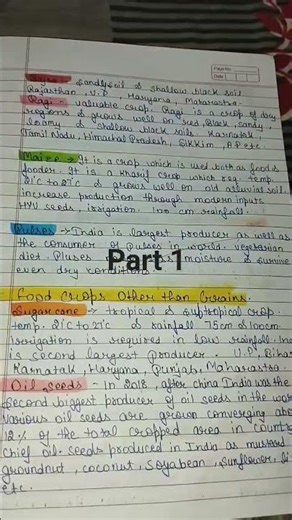 Page No.
Date
Bajra - Sandy soil & shallow black soil
Rajasthan, U.P, Haryana, Maharastra.
Ragi - valuable crop. Ragi is a crop of dry
regions & grows well on red, Black, sandy,
loamy & shallow black soils. Karnatak
Tamil Nadu, Himachal Pradesh, Sikkim, A.P etc
Maize → It is a crop which is used both as food &
fodder. It is a kharif crop which req. temp.
21°c to 27°c & grows well on old alluvial soil.
increase production through modern inputs
HYV seeds, irrigation. 100 cm rainfall.
Pulses → India is largest producer as well as
the consumer of pulses in world. vegetarian
diet. Pluses moisture & survive
even dry conditions
Part 1
Food Crops Other than Grains.
Sugarcane → tropical & suptropical crop
temp. 21°c to 27°c & rainfall 75cm & 100cm
irrigation is required in low rainfall.
is second largest producer. U.P, Bihar
Karnatak, Haryana, Punjab, Maharastra.
Oil Seeds - In 2018, after china India was the
second biggest producer of oil seeds in the
various oil seeds are grown converging
12% of the total cropped area in
chief oil-seeds produced in India as mustard
groundnut, coconut, soyabean, sunflower,
etc.